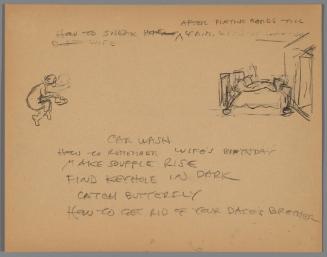 AFTER PLAYING CARDS TILL
HOW TO SNEAK
WIFE
CAR WASH
HOW TO REMEMBER WIFE'S BIRTHDAY
MAKE SOUFFLE RISE
FIND KEYHOLE IN DARK
CATCH BUTTERFLY
HOW TO GET RID OF YOUR DATE'S BROTHER